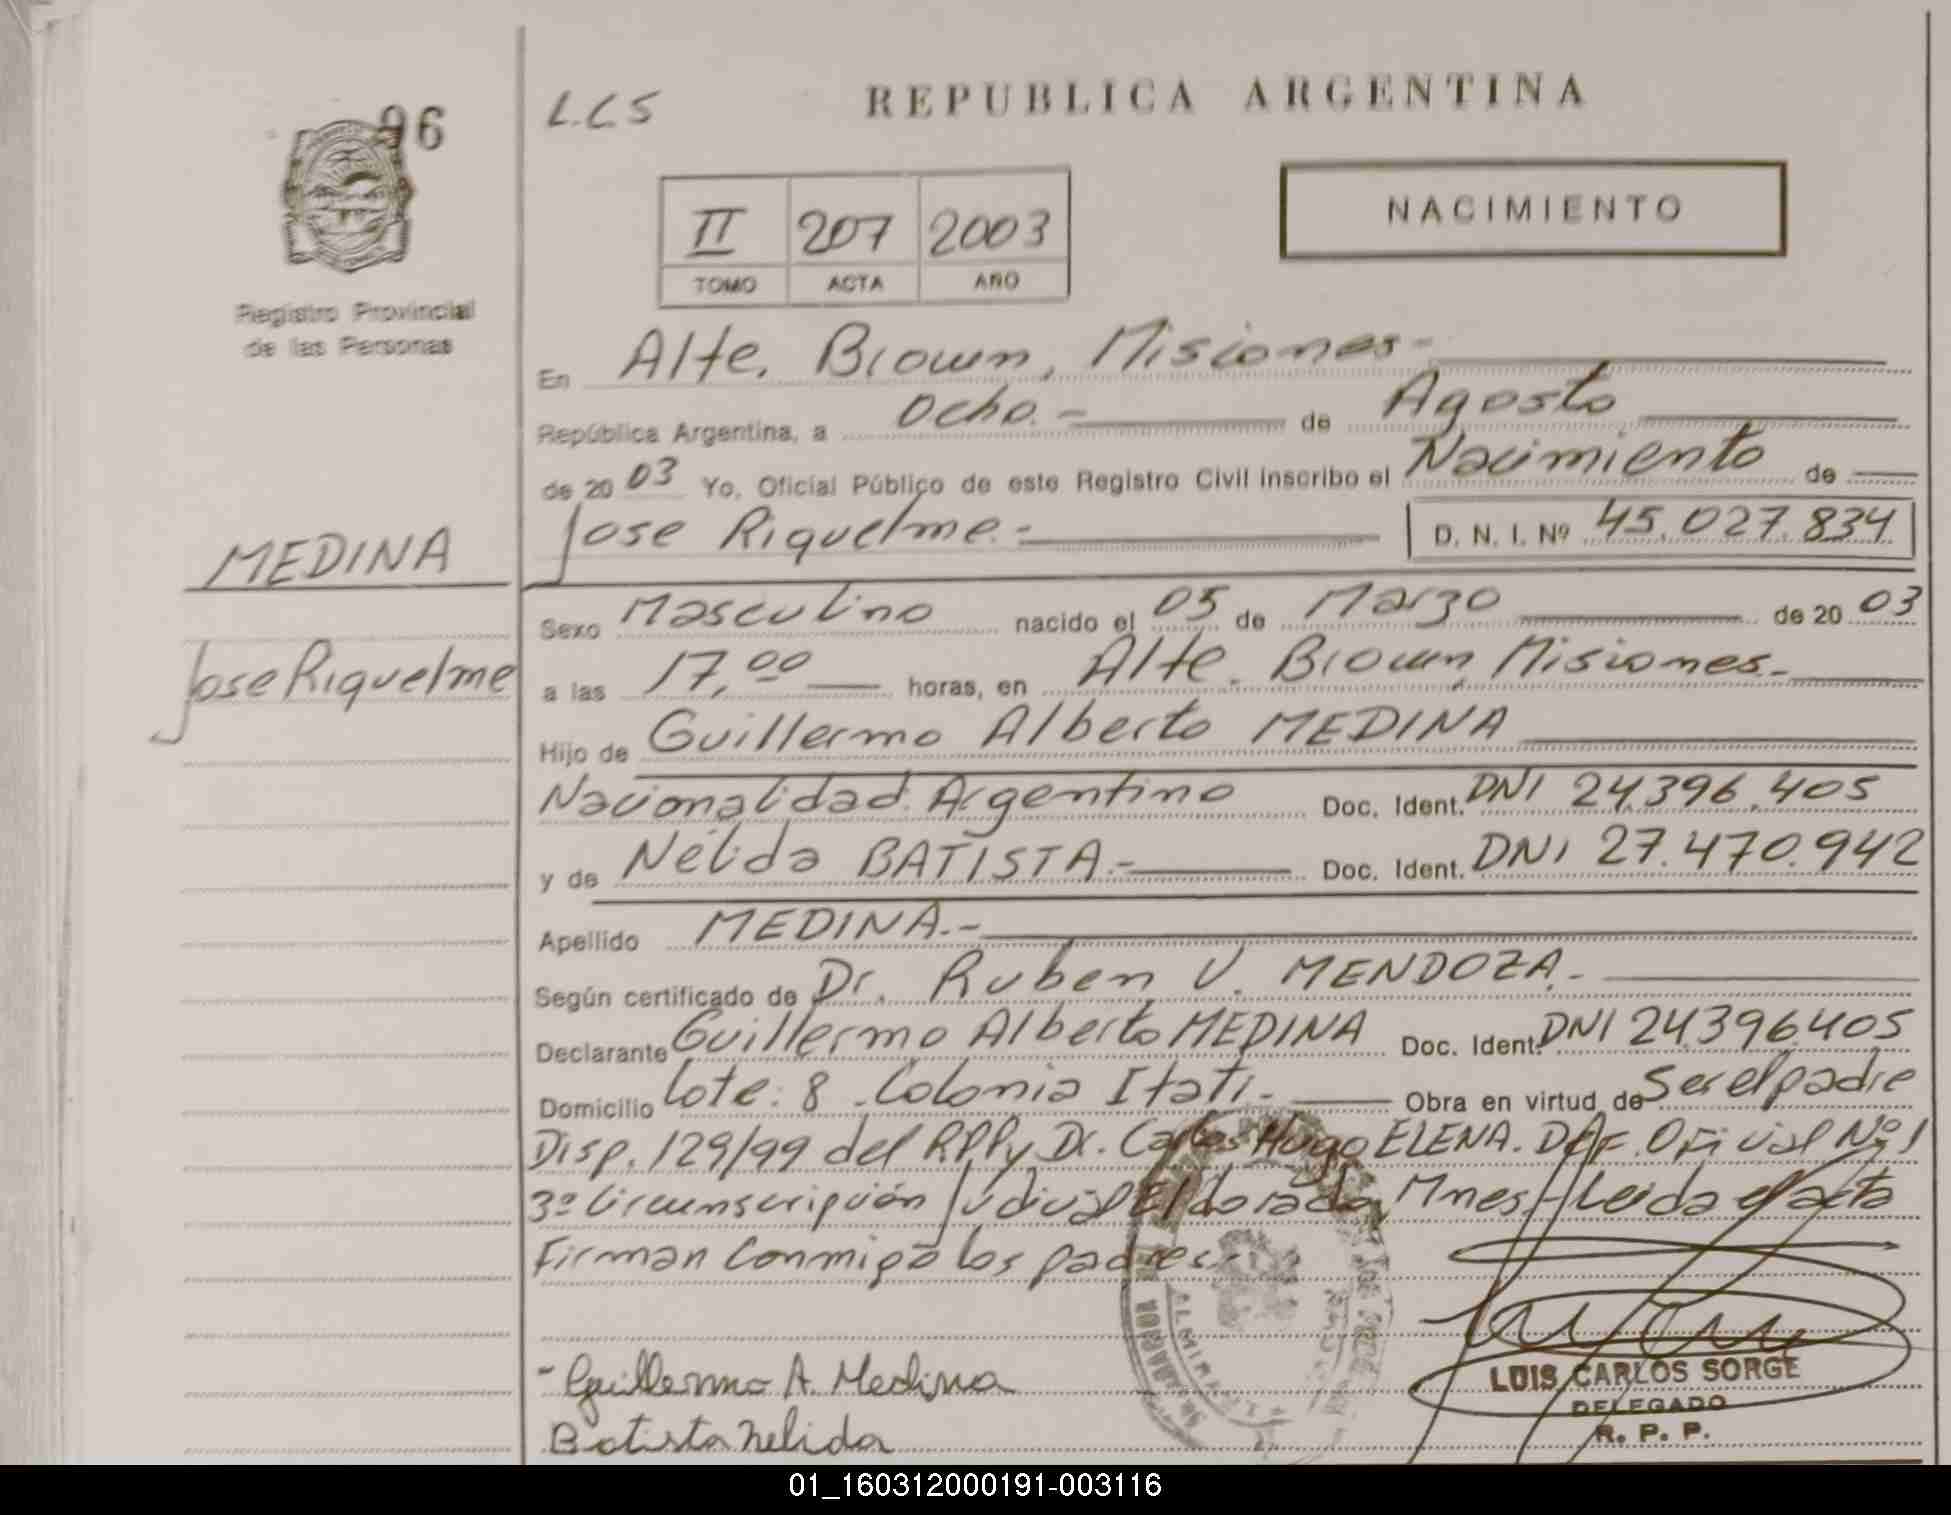 96
L.C.S
REPUBLICA ARGENTINA
II 207 2003
TOMO ACTA AÑO
NACIMIENTO
Registro Provincial
de las Personas
En Alte. Brown, Misiones.-
República Argentina, a Ocho.- de Agosto
de 2003 Yo, Oficial Público de este Registro Civil inscribo el Nacimiento de
Jose Riquelme.- D. N. I. Nº 45.027.834
MEDINA
Jose Riquelme
Sexo Masculino nacido el 05 de Marzo de 2003
a las 17,00 horas, en Alte. Brown, Misiones.-
Hijo de Guillermo Alberto MEDINA
Nacionalidad Argentino Doc. Ident. DNI 24.396.405
y de Nélida BATISTA.- Doc. Ident. DNI 27.470.942
Apellido MEDINA.-
Según certificado de Dr. Ruben V. MENDOZA.-
Declarante Guillermo Alberto MEDINA Doc. Ident. DNI 24.396.405
Domicilio Lote: 8 Colonia Itati.- Obra en virtud de Ser el padre
Disp. 129/99 del RPP y Dr. Carlos Hugo ELENA. DEF. Oficial Nº 1
3º Circunscripción Judicial Eldorado, Mnes.- Leida el acta
Firman Conmigo los padres.-
ALMIRANTE
- Guillermo A. Medina
Batista Nelida
LUIS CARLOS SORGE
DELEGADO
R. P. P.
01_160312000191-003116